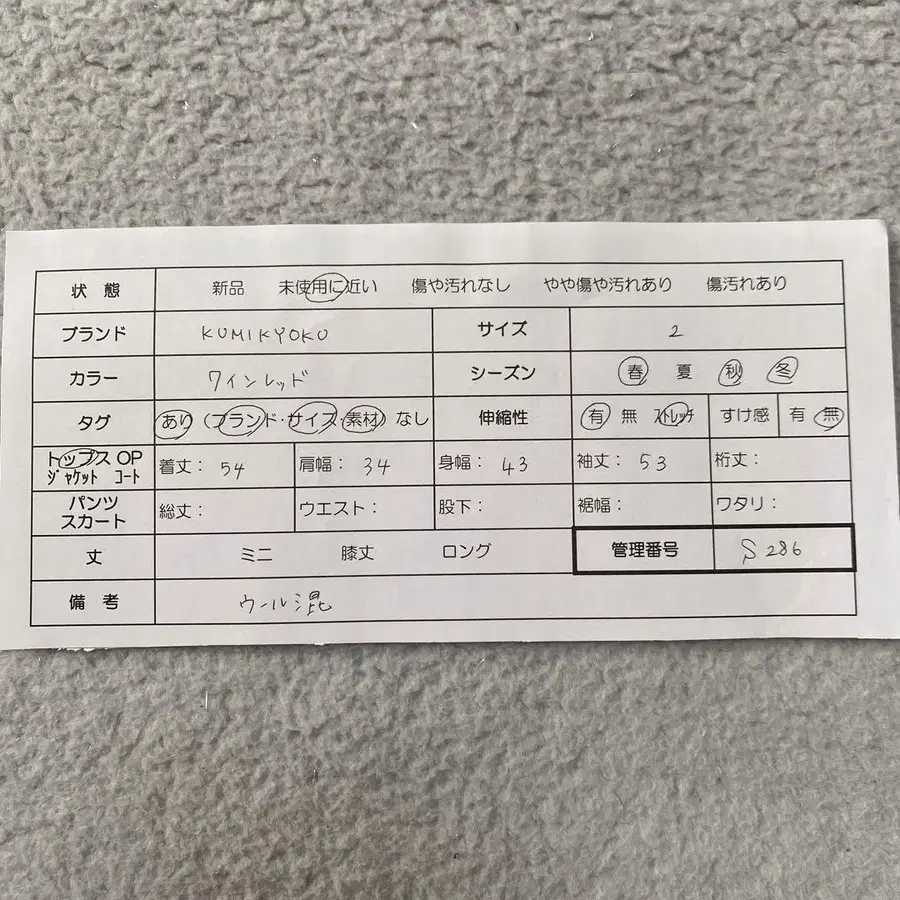 状態 新品 未使用に近い 傷や汚れなし やや傷や汚れあり 傷汚れあり
ブランド KUMIKYOKU サイズ 2
カラー ワインレッド シーズン 春 夏 秋 冬
タグ あり (ブランド・サイズ・素材) なし 伸縮性 有 無 ストレッチ すけ感 有 無
トップス OP
ジャケット コート 着丈: 54 肩幅: 34 身幅: 43 袖丈: 53 裄丈:
パンツ
スカート 総丈: ウエスト: 股下: 裾幅: ワタリ:
丈 ミニ 膝丈 ロング 管理番号 S286
備考 ウール混